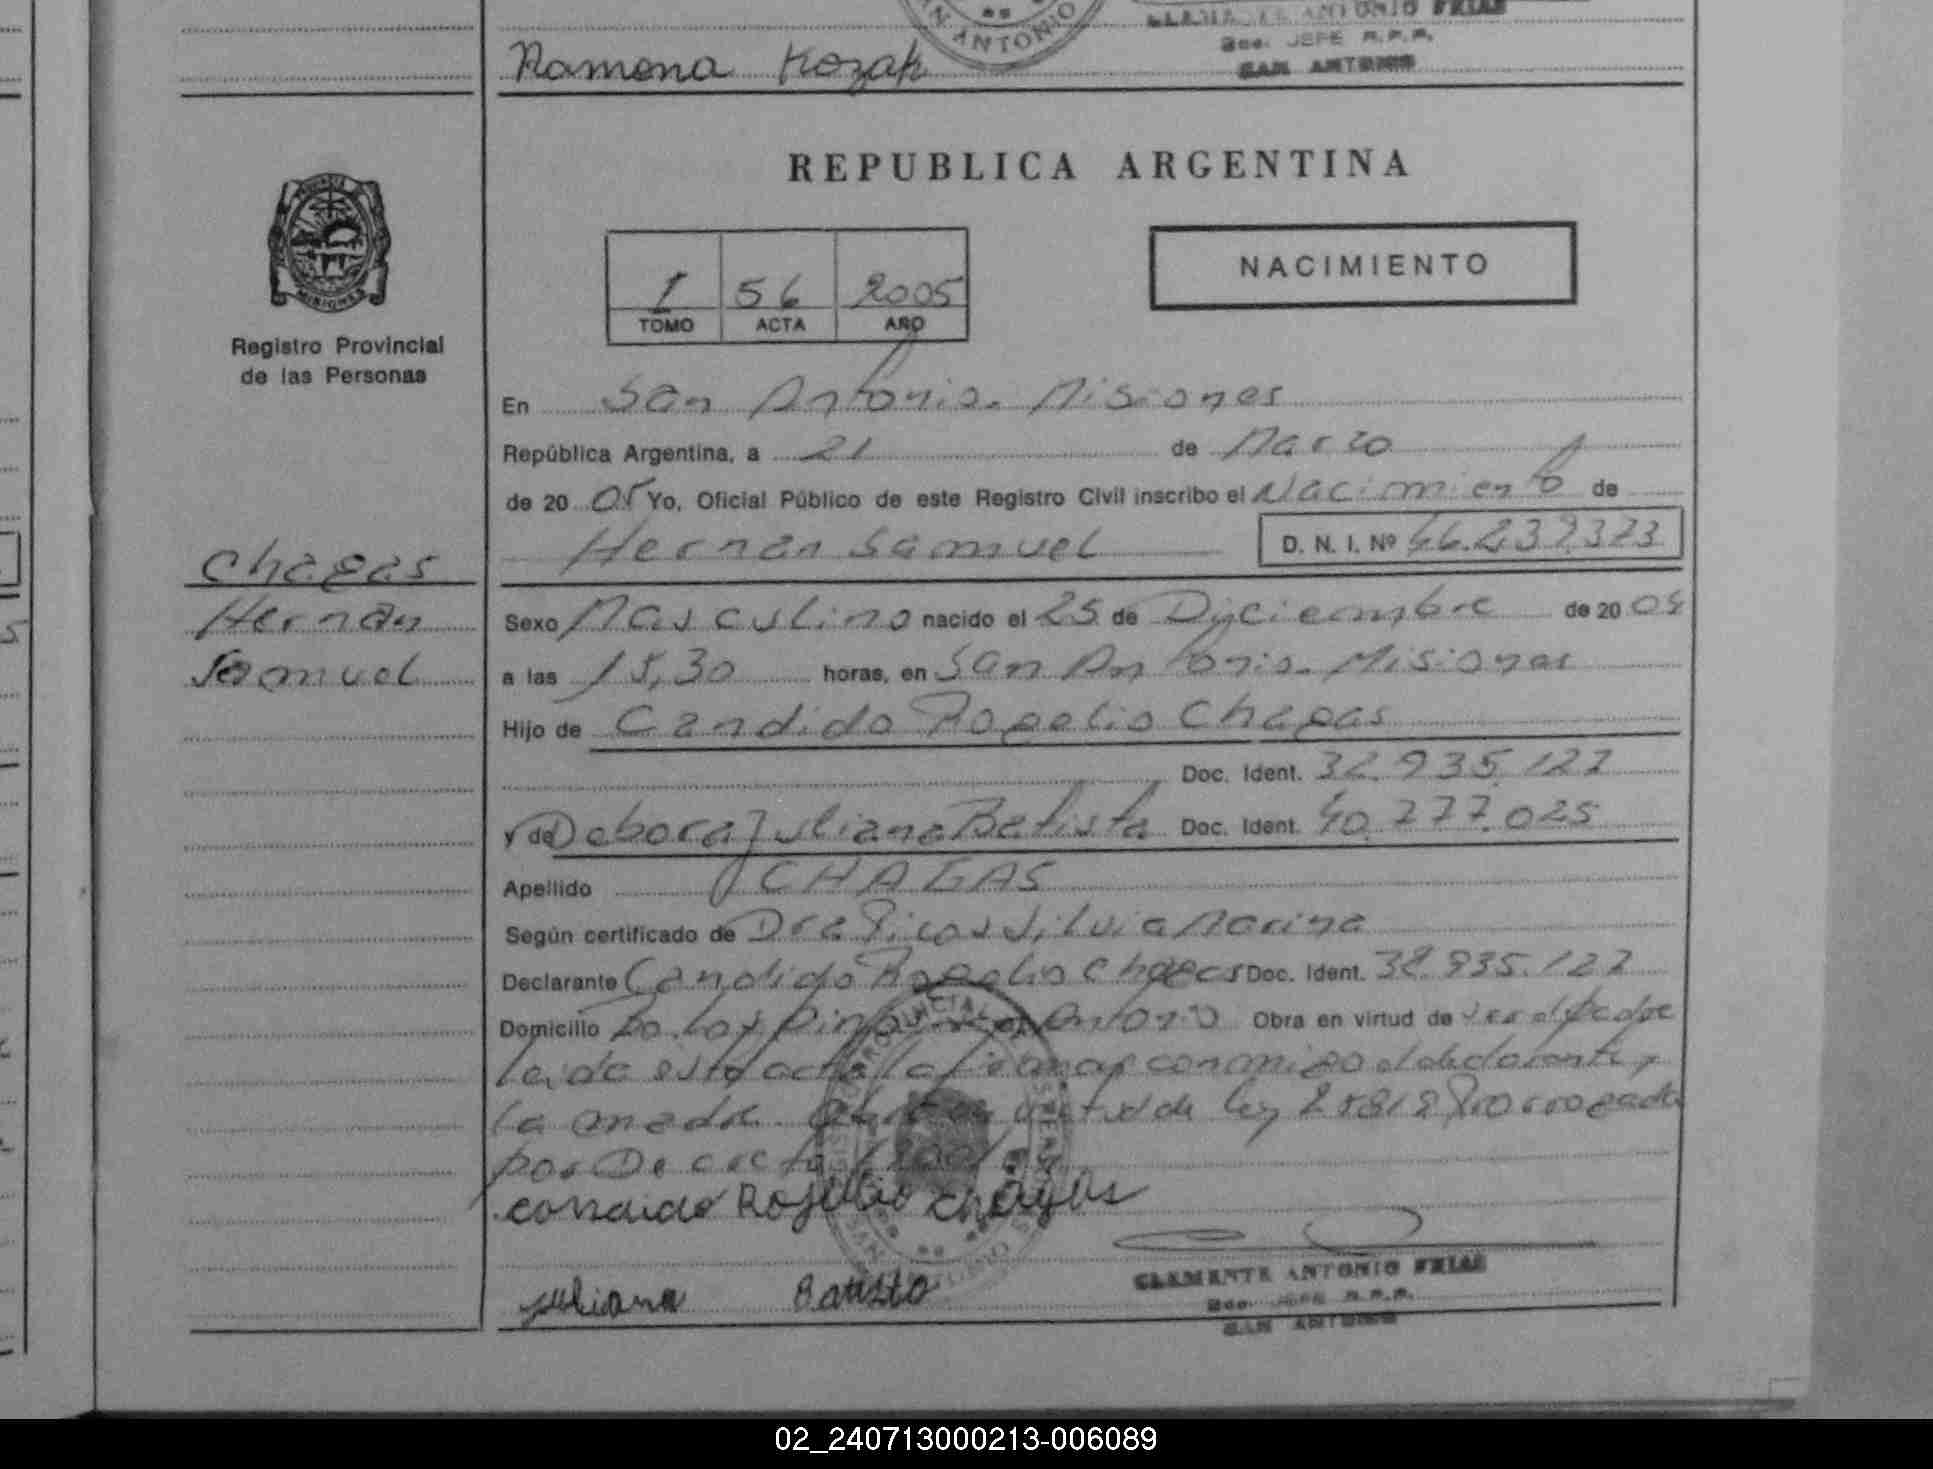 SAN ANTONIO
CLEMENTE ANTONIO FRIAS
JEFE R.P.P.
SAN ANTONIO
Ramona Kozak
REPUBLICA ARGENTINA
NACIMIENTO
1 56 2005
TOMO ACTA AÑO
MISIONES
Registro Provincial
de las Personas
En San Antonio. Misiones
República Argentina, a 21 de Marzo
de 20 05 Yo, Oficial Público de este Registro Civil inscribo el Nacimiento de
Hernan Samuel D. N. I. Nº 46.239.323
Chagas
Hernan
Samuel
Sexo Masculino nacido el 25 de Dyciembre de 20 04
a las 15,30 horas, en San Antonio. Misiones
Hijo de Candido Rogelio Chagas
Doc. Ident. 32.935.127
y de Debora Juliana Batista Doc. Ident. 40.277.025
Apellido CHAGAS
Según certificado de Dra Picos Silvia Marina
Declarante Candido Rogelio Chagas Doc. Ident. 32.935.127
Domicilio Antonio Obra en virtud de ser el padre
leida esta acta la firman conmigo el declarante y
la madre. Obra en virtud de ley 25819 Prorrogada
por Decreto
Candido Rogelio Chagas
CLEMENTE ANTONIO FRIAS
JEFE R.P.P.
SAN ANTONIO
Juliana Batista
02_240713000213-006089